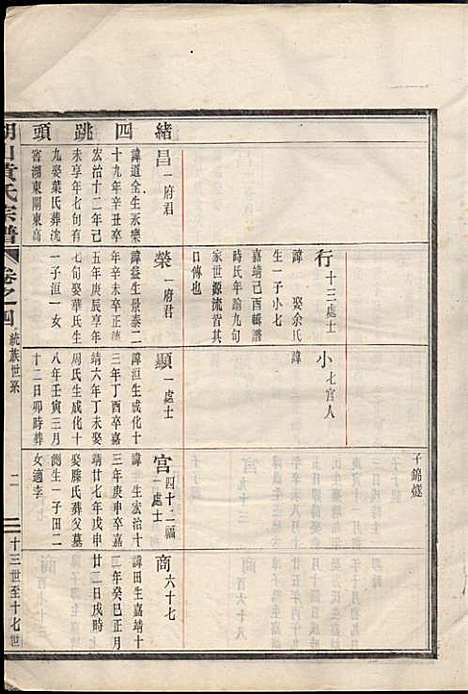 緒四跳頭
子錦燧
行十三處士
諱 娶余氏
生一子小七
嘉靖己酉輯譜
時氏年踰九旬
家世源流皆其
口傳也
小七官人
諱
昌一府君
諱道全生永樂
十九年辛丑卒
宏治十二年己
未享年七旬有
九娶葉氏葬湾
窖湖東閘東高
榮一府君
諱益生景泰二
年辛未卒正德
五年庚辰享年
七旬娶華氏生
一子洹一女
顯一處士
諱洹生成化十
三年丁酉卒嘉
靖六年丁未娶
周氏生成化十
八年壬寅三月
十二日卯時葬
宮四十二福一處士
諱 生宏治十
三年庚申卒嘉
靖廿七年戊申
娶滕氏葬父墓
側生一子田二
女適李
商六十七
諱田生嘉靖十
二年癸巳正月
廿二日戌時
黃氏宗譜
卷之四
統族世系
二
十三世至十七世